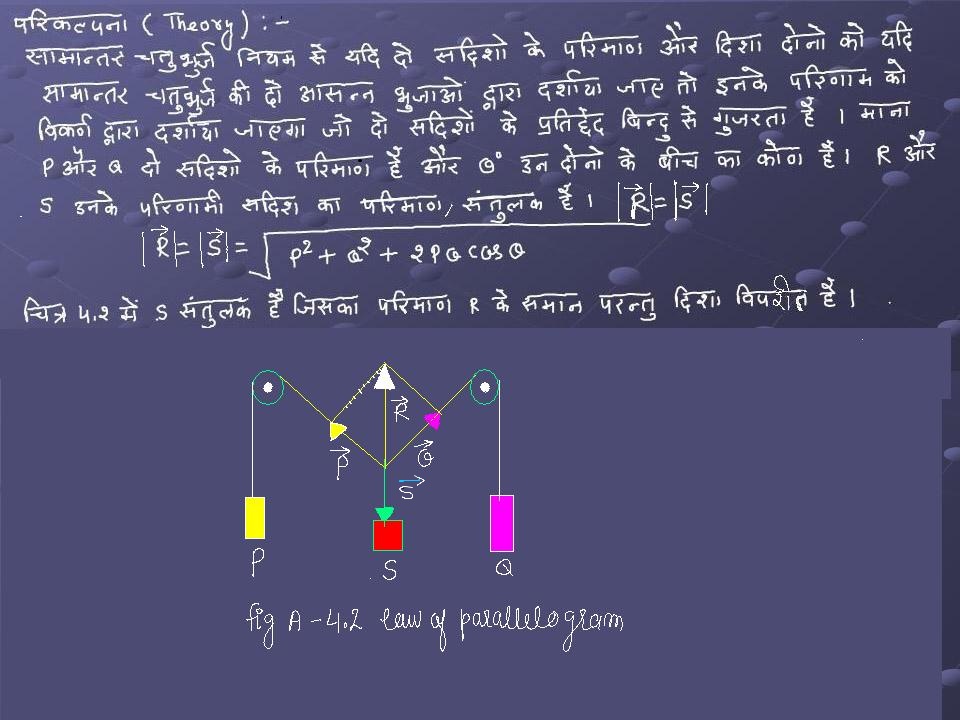 परिकल्पना (Theory) :-
सामान्तर चतुर्भुज नियम से यदि दो सदिशो के परिमाण और दिशा दोनो को यदि
सामान्तर चतुर्भुज की दो आसन्न भुजाओं द्वारा दर्शाया जाए तो इनके परिणाम को
विकर्ण द्वारा दर्शाया जाएगा जो दो सदिशों के प्रतिछेद बिन्दु से गुजरता है । माना
P और Q दो सदिशो के परिमाण हैं और θ° उन दोनो के बीच का कोण है। R और
S उनके परिणामी सदिश का परिमाण, संतुलक है। |R⃗|=|S⃗|
|R⃗|=|S⃗|=√P²+Q²+2PQcosθ
चित्र 4.2 में S संतुलक है जिसका परिमाण R के समान परन्तु दिशा विपरीत है।
R⃗
P⃗
Q⃗
S⃗
P
S
Q
fig A-4.2 law of parallelogram